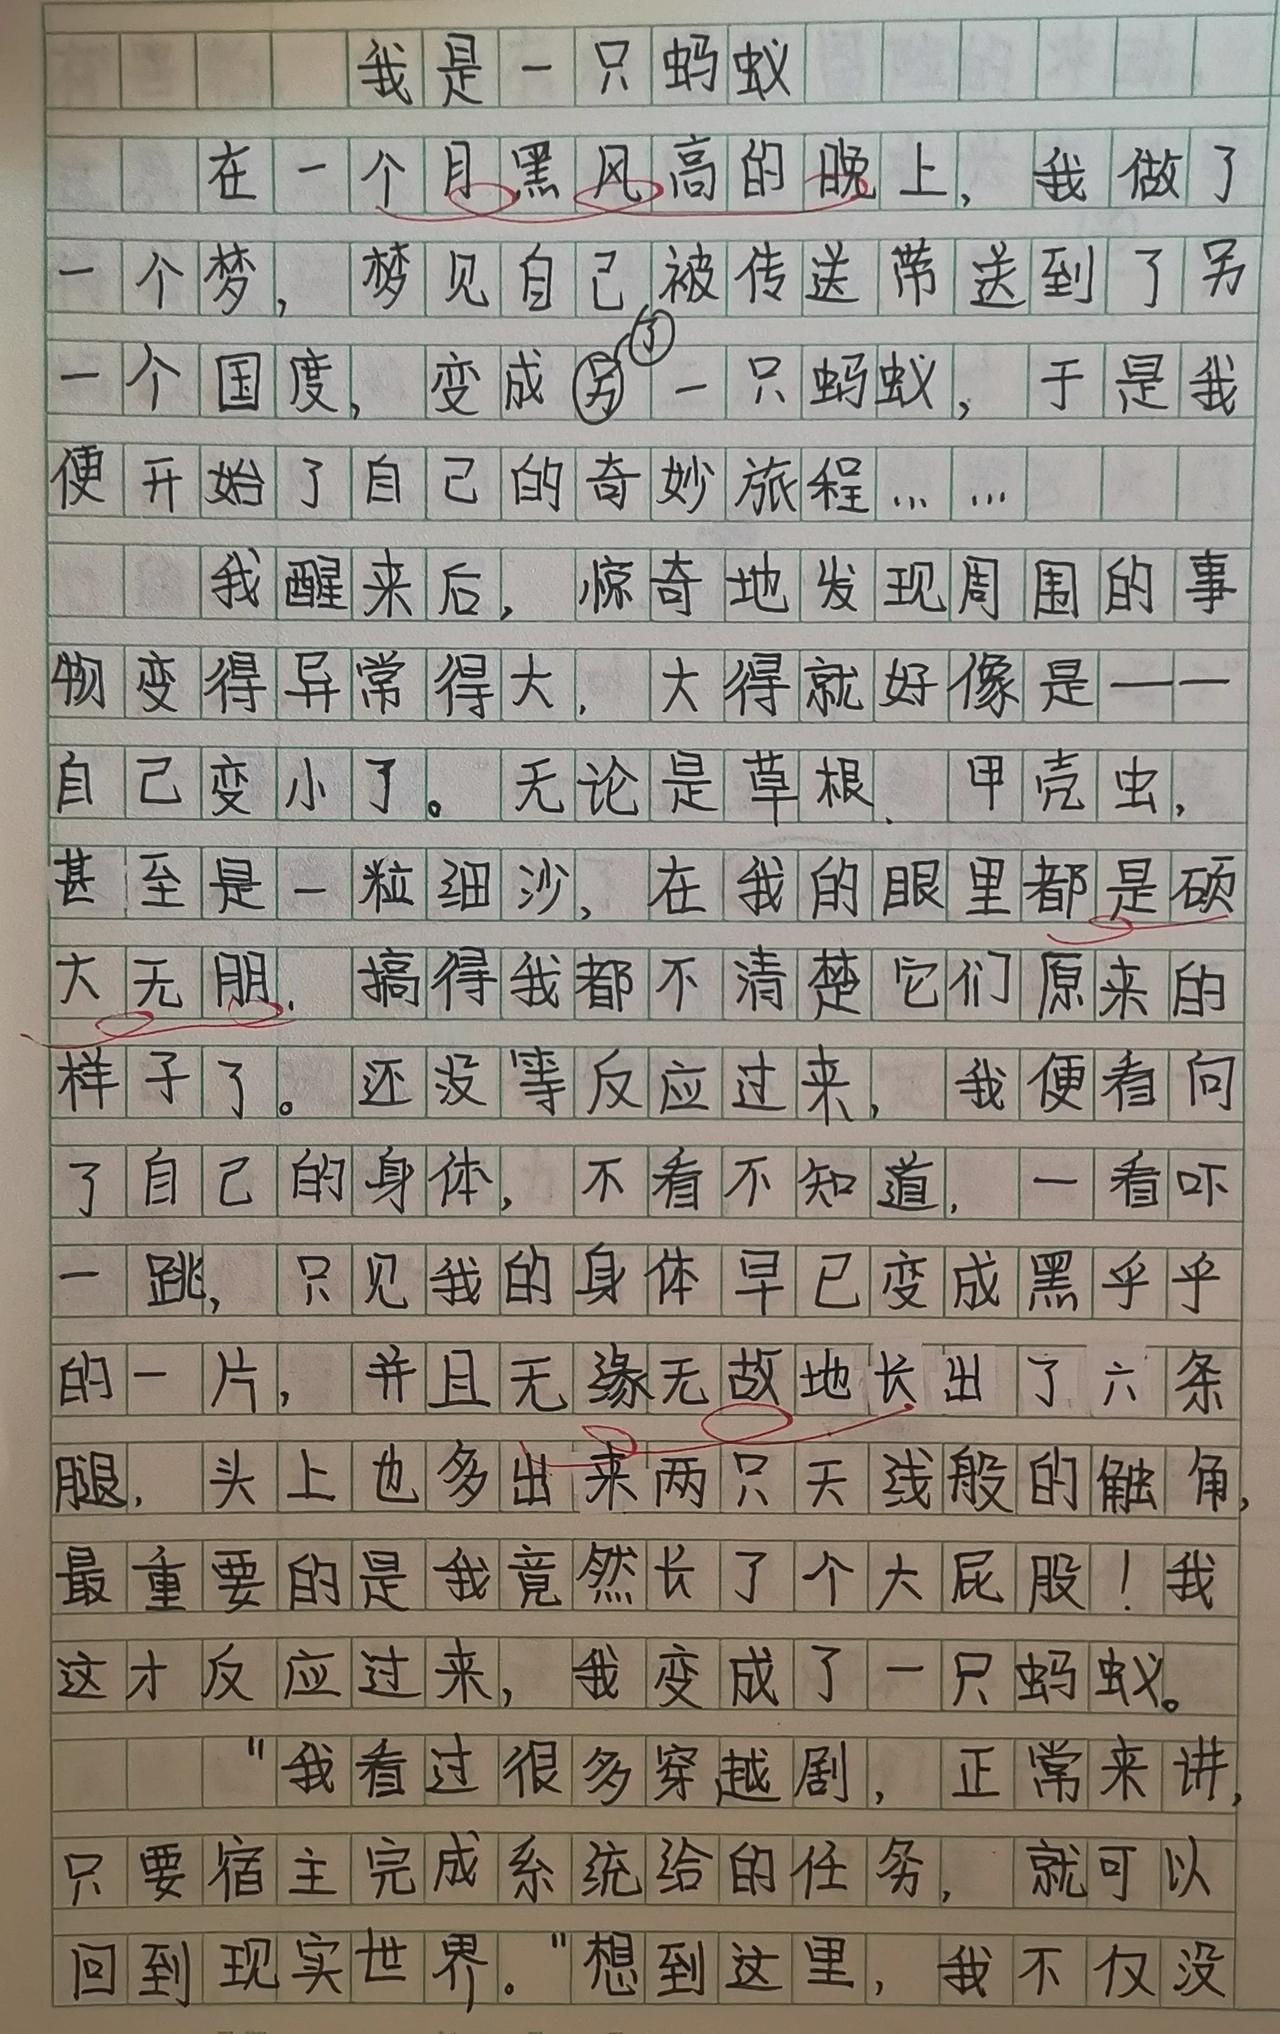 我是一只蚂蚁
在一个月黑风高的晚上，我做了
一个梦，梦见自己被传送带送到了另
一个国度，变成了一只蚂蚁，于是我
便开始了自己的奇妙旅程……
我醒来后，惊奇地发现周围的事
物变得异常得大，大得就好像是——
自己变小了。无论是草根、甲壳虫，
甚至是一粒细沙，在我的眼里都是硕
大无朋，搞得我都不清楚它们原来的
样子了。还没等反应过来，我便看向
了自己的身体，不看不知道，一看吓
一跳，只见我的身体早已变成黑乎乎
的一片，并且无缘无故地长出了六条
腿，头上也多出来两只天线般的触角，
最重要的是我竟然长了个大屁股！我
这才反应过来，我变成了一只蚂蚁。
"我看过很多穿越剧，正常来讲，
只要宿主完成系统给的任务，就可以
回到现实世界。"想到这里，我不仅没